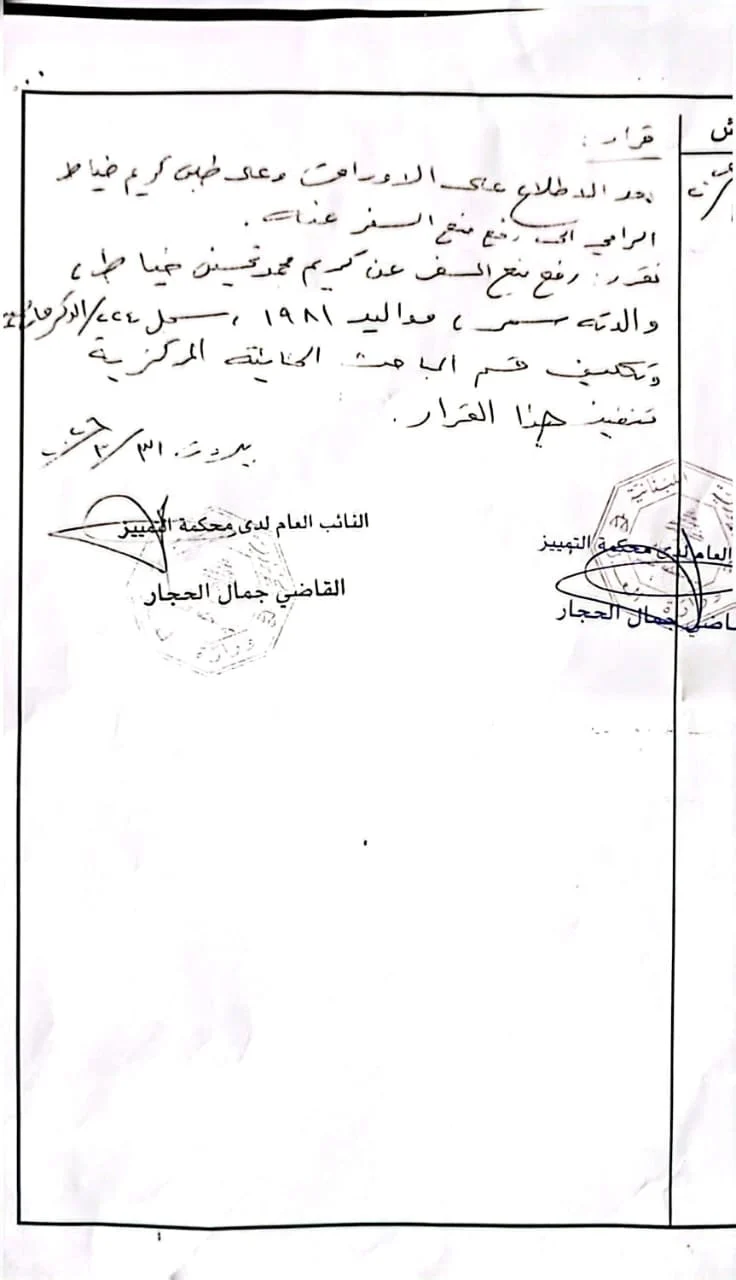 قرار :
بعد الاطلاع على الاوراق وعلى طلب كريم خياط
الرامي الى رفع منع السفر عنه .
نقرر : رفع منع السفر عن كريم محمد تحسين خياط ،
والدته سمر ، مواليد ١٩٨١ ، سجل ٢٢٤/
وتكليف قسم المباحث الجنائية المركزية
تنفيذ هذا القرار .
بيروت ٣١/٣/
النائب العام لدى محكمة التمييز
القاضي جمال الحجار
العام لدى محكمة التمييز
جمال الحجار
اللبنانية
وزارة